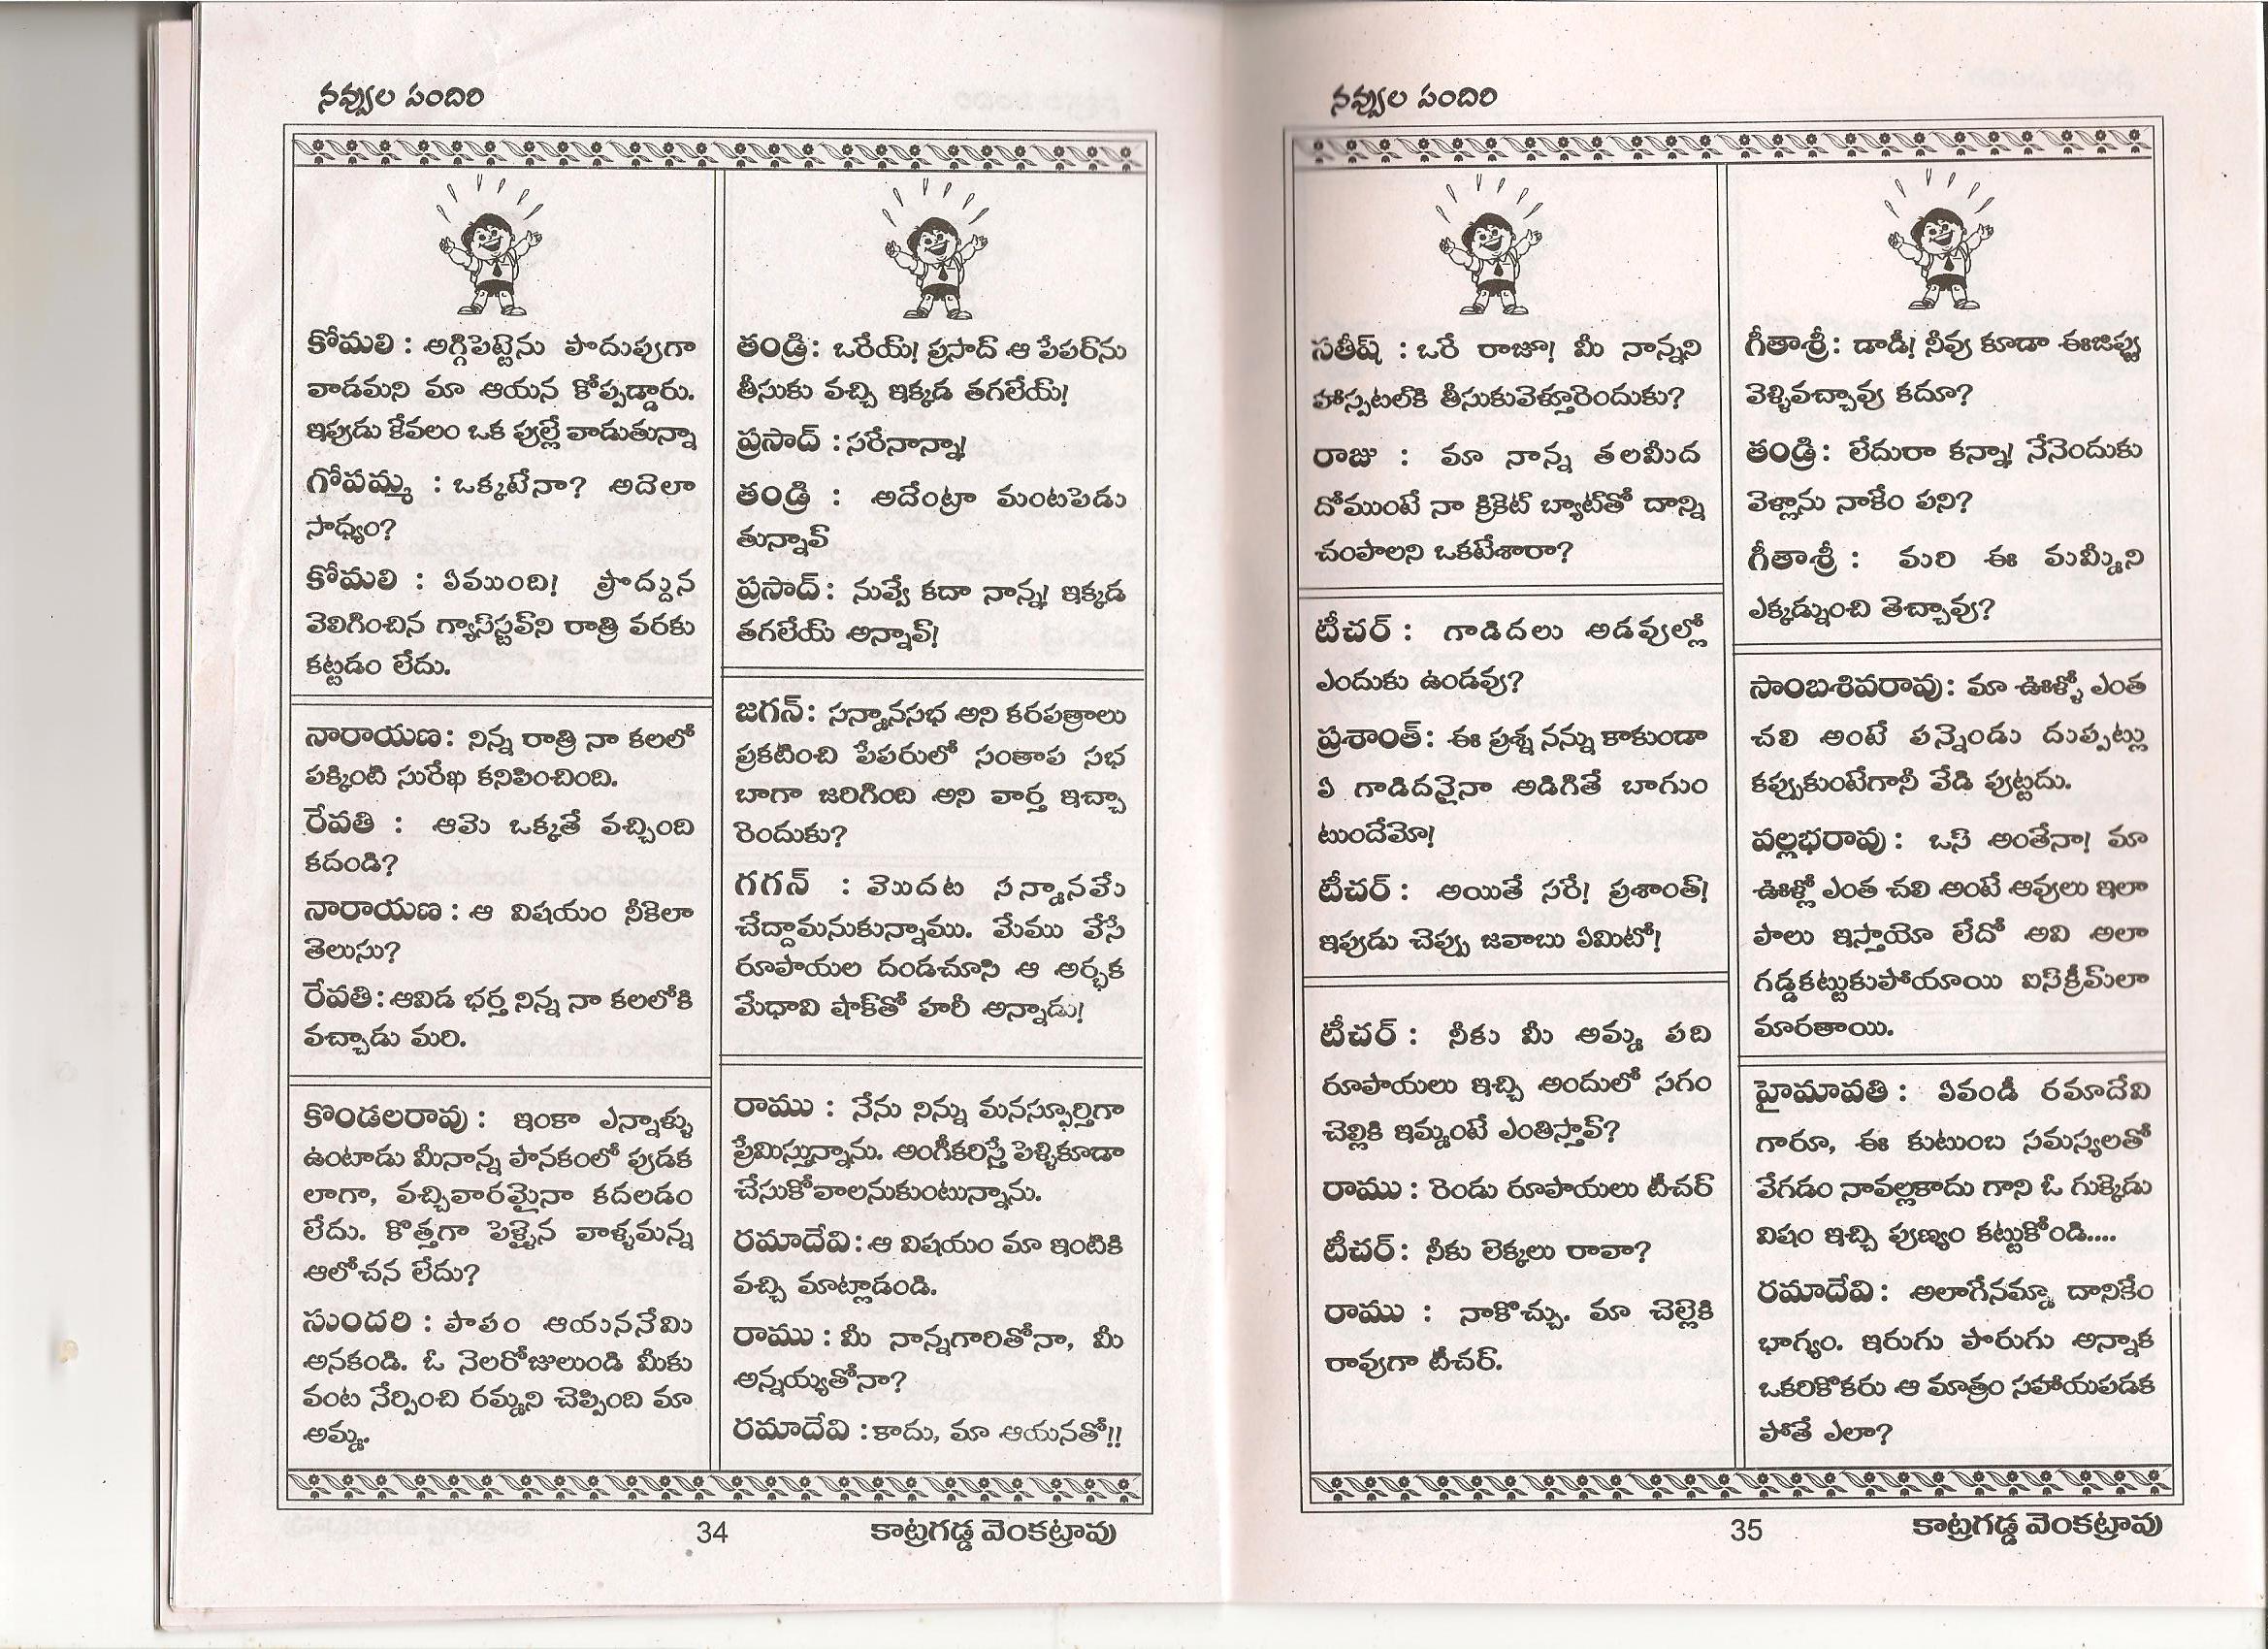 నవ్వుల పందిరి
కోమలి : అగ్గిపెట్టెను పొదుపుగా
వాడమని మా ఆయన కోప్పడ్డారు.
ఇపుడు కేవలం ఒక పుల్లే వాడుతున్నా
గోపమ్మ : ఒక్కటేనా? అదెలా
సాధ్యం?
కోమలి : ఏముంది! ప్రొద్దున
వెలిగించిన గ్యాస్‌స్టవ్‌ని రాత్రి వరకు
కట్టడం లేదు.
నారాయణ: నిన్న రాత్రి నా కలలో
పక్కింటి సురేఖ కనిపించింది.
రేవతి : ఆమె ఒక్కతే వచ్చింది
కదండి?
నారాయణ : ఆ విషయం నీకెలా
తెలుసు?
రేవతి: ఆవిడ భర్త నిన్న నా కలలోకి
వచ్చాడు మరి.
కొండలరావు : ఇంకా ఎన్నాళ్ళు
ఉంటాడు మీనాన్న పానకంలో పుడక
లాగా, వచ్చివారమైనా కదలడం
లేదు. కొత్తగా పెళ్ళైన వాళ్ళమన్న
ఆలోచన లేదు?
సుందరి : పాపం ఆయననేమి
అనకండి. ఓ నెలరోజులుండి మీకు
వంట నేర్పించి రమ్మని చెప్పింది మా
అమ్మ.
తండ్రి: ఒరేయ్! ప్రసాద్ ఆ పేపర్‌ను
తీసుకు వచ్చి ఇక్కడ తగలేయ్!
ప్రసాద్ : సరేనాన్నా!
తండ్రి : అదేంట్రా మంటపెడు
తున్నావ్
ప్రసాద్: నువ్వే కదా నాన్న! ఇక్కడ
తగలేయ్ అన్నావ్!
జగన్: సన్మానసభ అని కరపత్రాలు
ప్రకటించి పేపరులో సంతాప సభ
బాగా జరిగింది అని వార్త ఇచ్చా
రెందుకు?
గగన్ : మొదట సన్మానమే
చేద్దామనుకున్నాము. మేము వేసే
రూపాయల దండచూసి ఆ అర్భక
మేధావి షాక్‌తో హరీ అన్నాడు!
రాము : నేను నిన్ను మనస్ఫూర్తిగా
ప్రేమిస్తున్నాను. అంగీకరిస్తే పెళ్ళికూడా
చేసుకోవాలనుకుంటున్నాను.
రమాదేవి: ఆ విషయం మా ఇంటికి
వచ్చి మాట్లాడండి.
రాము : మీ నాన్నగారితోనా, మీ
అన్నయ్యతోనా?
రమాదేవి : కాదు, మా ఆయనతో!!
34
కాట్రగడ్డ వెంకట్రావు
నవ్వుల పందిరి
సతీష్ : ఒరే రాజూ! మీ నాన్నని
హాస్పటల్‌కి తీసుకువెళ్తూరెందుకు?
రాజు : మా నాన్న తలమీద
దోముంటే నా క్రికెట్ బ్యాట్‌తో దాన్ని
చంపాలని ఒకటేశారా?
టీచర్ : గాడిదలు అడవుల్లో
ఎందుకు ఉండవు?
ప్రశాంత్: ఈ ప్రశ్న నన్ను కాకుండా
ఏ గాడిదనైనా అడిగితే బాగుం
టుందేమో!
టీచర్ : అయితే సరే! ప్రశాంత్!
ఇపుడు చెప్పు జవాబు ఏమిటో!
టీచర్ : నీకు మీ అమ్మ పది
రూపాయలు ఇచ్చి అందులో సగం
చెల్లికి ఇమ్మంటే ఎంతిస్తావ్?
రాము : రెండు రూపాయలు టీచర్
టీచర్ : నీకు లెక్కలు రావా?
రాము : నాకొచ్చు. మా చెల్లెకి
రావుగా టీచర్.
గీతాశ్రీ: డాడీ! నీవు కూడా ఈజిప్టు
వెళ్ళివచ్చావు కదూ?
తండ్రి: లేదురా కన్నా! నేనెందుకు
వెళ్లాను నాకేం పని?
గీతాశ్రీ : మరి ఈ మమ్మీని
ఎక్కడ్నుంచి తెచ్చావు?
సాంబశివరావు: మా ఊళ్ళో ఎంత
చలి అంటే పన్నెండు దుప్పట్లు
కప్పుకుంటేగానీ వేడి పుట్టదు.
వల్లభరావు : ఒస్ అంతేనా! మా
ఊళ్లో ఎంత చలి అంటే ఆవులు ఇలా
పాలు ఇస్తాయో లేదో అవి అలా
గడ్డకట్టుకుపోయాయి ఐస్‌క్రీమ్‌లా
మారతాయి.
హైమావతి : ఏవండీ రమాదేవి
గారూ, ఈ కుటుంబ సమస్యలతో
వేగడం నావల్లకాదు గాని ఓ గుక్కెడు
విషం ఇచ్చి పుణ్యం కట్టుకోండి....
రమాదేవి : అలాగేనమ్మా దానికేం
భాగ్యం. ఇరుగు పొరుగు అన్నాక
ఒకరికొకరు ఆ మాత్రం సహాయపడక
పోతే ఎలా?
35
కాట్రగడ్డ వెంకట్రావు